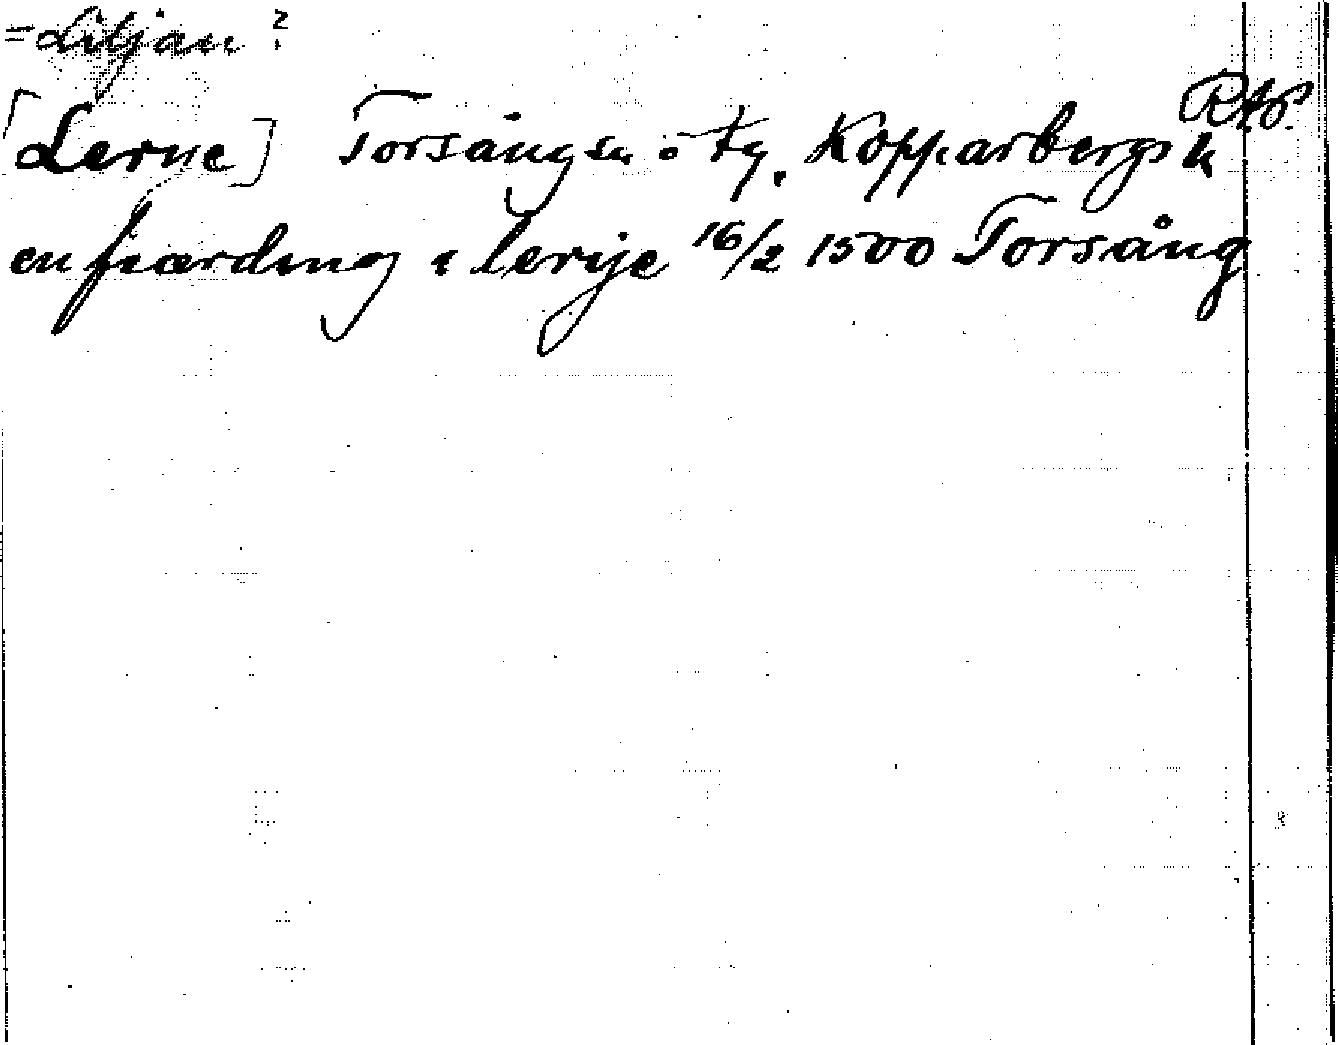 = Liljan?
RAP.
[Lerne] Torsångs sn o tg, Kopparbergs k
en fiærding i lerije 16/2 1500 Torsång